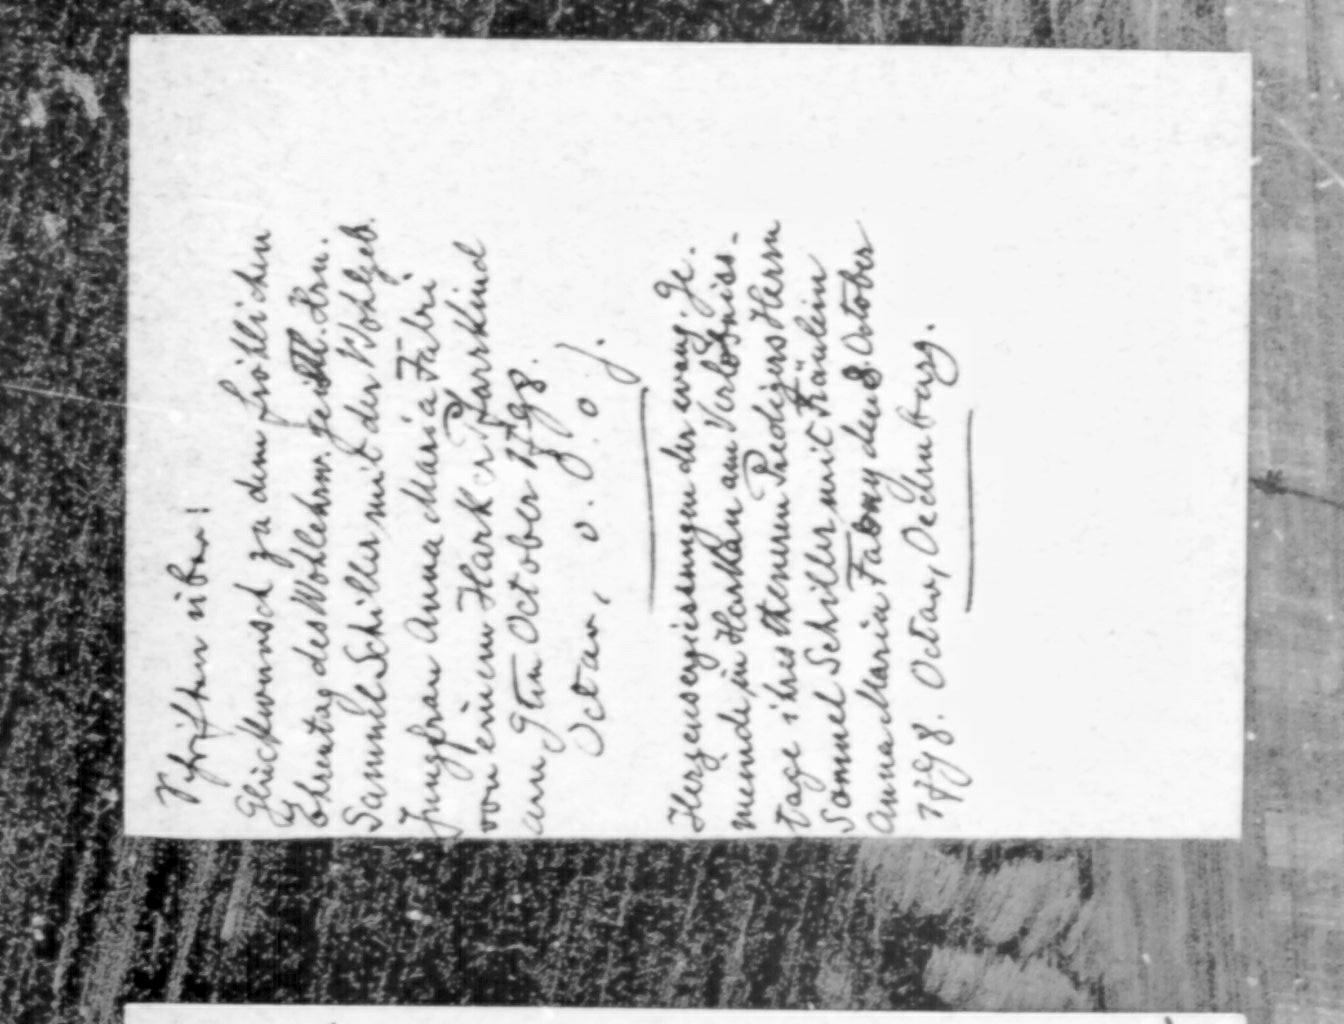 Schriften über!
Glückwunsch zu dem frölichen
Ehrentag des Wohlehrw. Hrn.
Samuel Schiller, mit der Wohlgeb.
Jungfrau Anna Maria Fabri
von einem Harker Pfarrkind
am 9ten October 1798.
Octav, o. O. J.
Herzensergiessungen der evang. Ge-
meinde in Harkau am Verlöbniss-
tage ihres theueren Predigers Herrn
Samuel Schiller mit Fräulein
Anna Maria Fabry den 8. October
1798. Octav, Oedenburg.